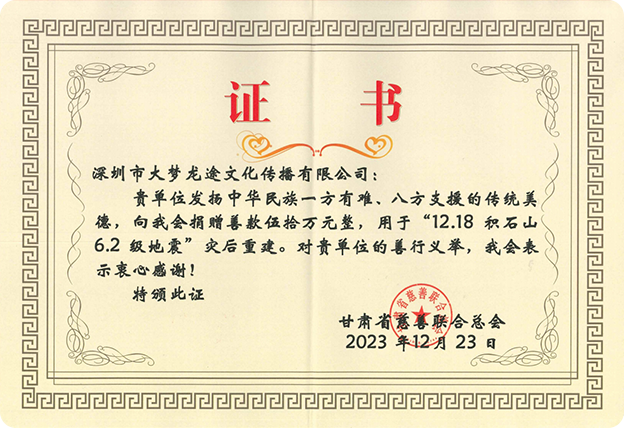 证 书
深圳市大梦龙途文化传播有限公司：
贵单位发扬中华民族一方有难、八方支援的传统美
德，向我会捐赠善款伍拾万元整，用于“12.18 积石山
6.2 级地震”灾后重建。对贵单位的善行义举，我会表
示衷心感谢！
特颁此证
甘肃省慈善联合总会
2023 年12月 23 日